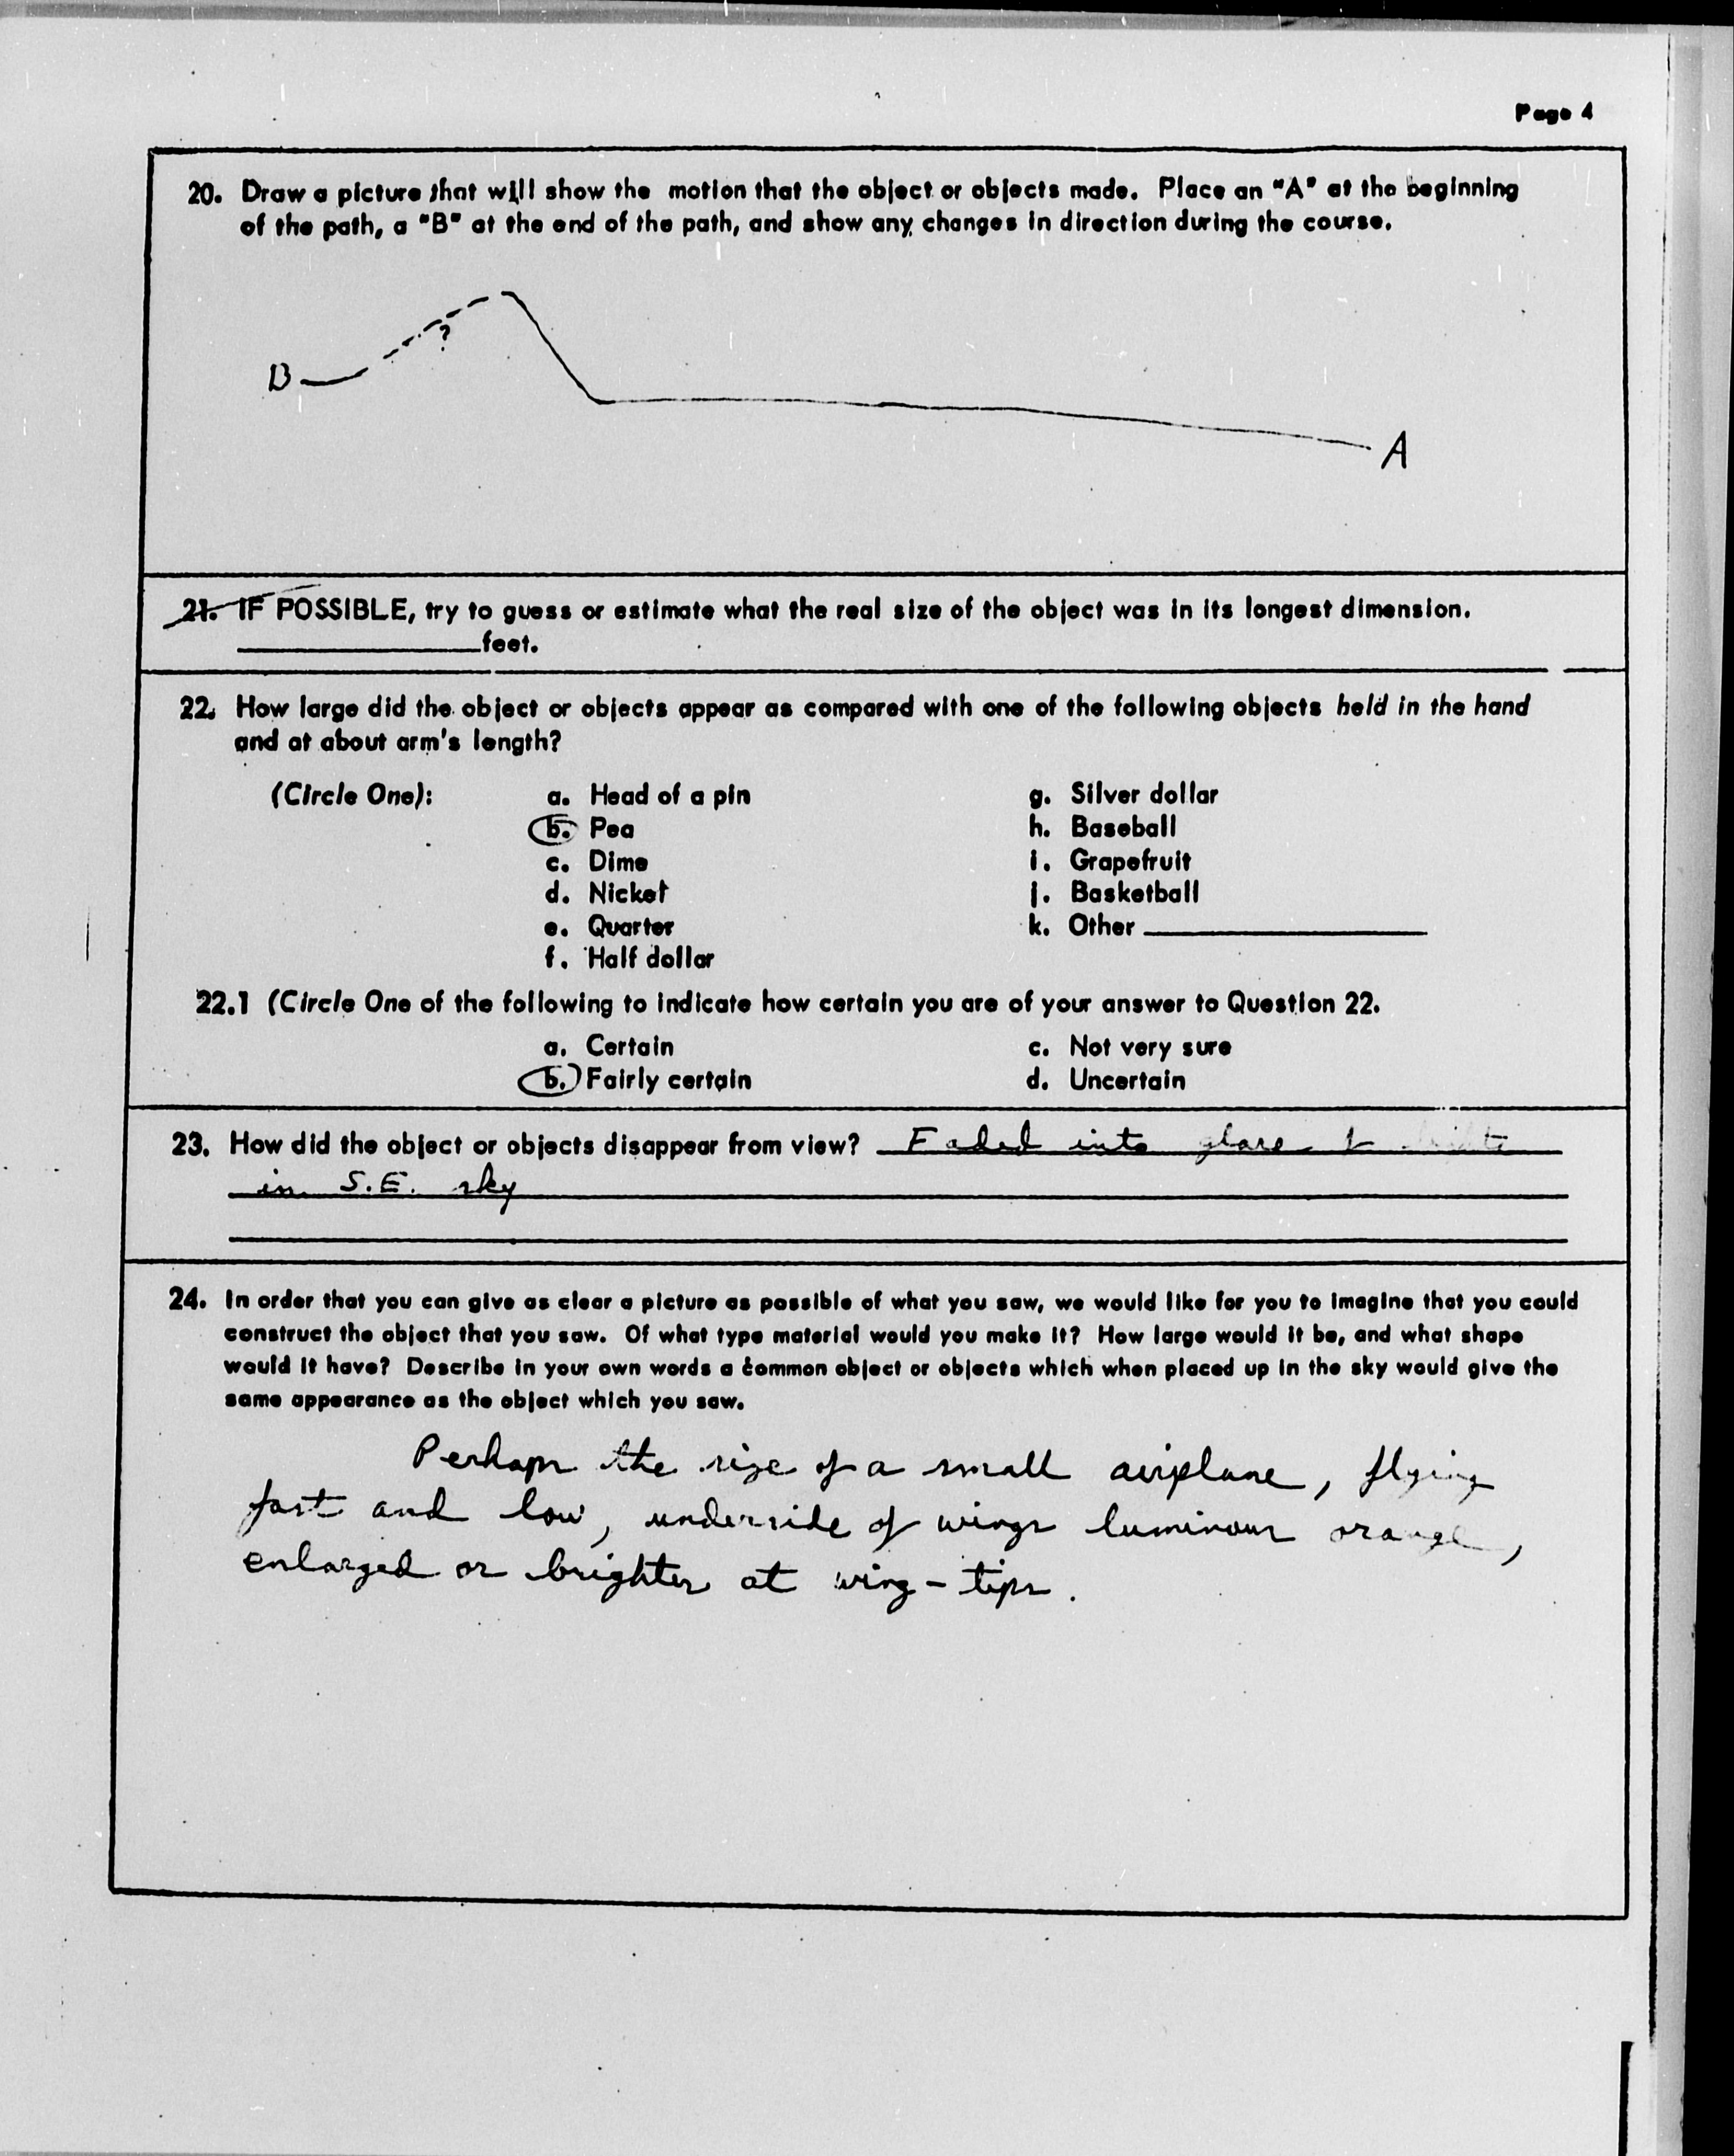 Page 4
20. Draw a picture that will show the motion that the object or objects made. Place an "A" at the beginning
of the path, a "B" at the end of the path, and show any changes in direction during the course.
?
B
A
21. IF POSSIBLE, try to guess or estimate what the real size of the object was in its longest dimension.
feet.
22. How large did the object or objects appear as compared with one of the following objects held in the hand
and at about arm's length?
(Circle One): a. Head of a pin g. Silver dollar
b. Pea h. Baseball
c. Dime i. Grapefruit
d. Nickel j. Basketball
e. Quarter k. Other
f. Half dollar
22.1 (Circle One of the following to indicate how certain you are of your answer to Question 22.
a. Certain c. Not very sure
b. Fairly certain d. Uncertain
23. How did the object or objects disappear from view? Faded into glare &
in S.E. sky
24. In order that you can give as clear a picture as possible of what you saw, we would like for you to imagine that you could
construct the object that you saw. Of what type material would you make it? How large would it be, and what shape
would it have? Describe in your own words a common object or objects which when placed up in the sky would give the
same appearance as the object which you saw.
Perhaps the size of a small airplane, flying
fast and low, underside of wings luminous orange,
enlarged or brighter at wing-tips.